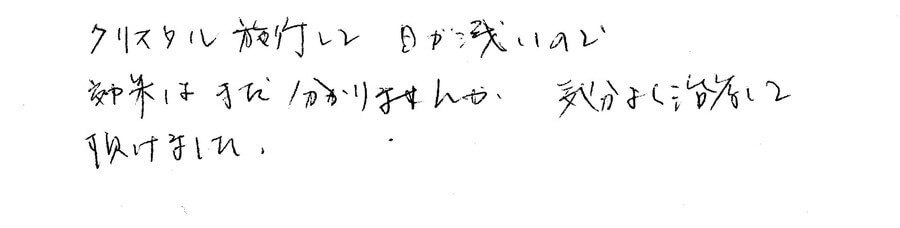 クリスタル施行して 日が浅いので
効果はまだ分かりませんが、気分よく治療して
頂けました。